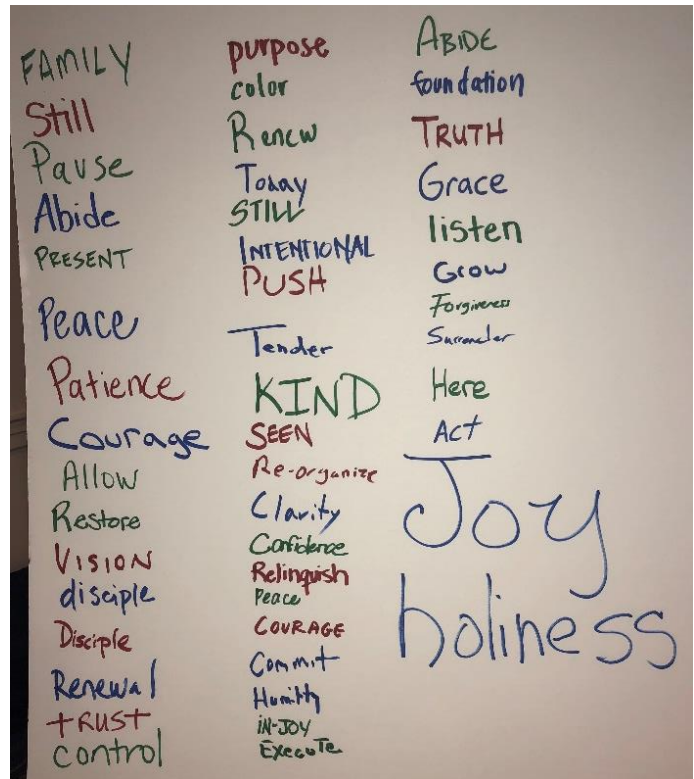 FAMILY
Still
Pause
Abide
PRESENT
Peace
Patience
Courage
Allow
Restore
VISION
disciple
Disciple
Renewal
tRUSt
control
purpose
color
Renew
Today
STILL
INTENTIONAL
PUSH
Tender
KIND
SEEN
Re-organize
Clarity
Confidence
Relinquish
Peace
COURAGE
Commit
Humility
IN-JOY
EXECUTE
ABIDE
foundation
TRUTH
Grace
listen
Grow
Forgiveness
Surrender
Here
ACT
Joy
holiness